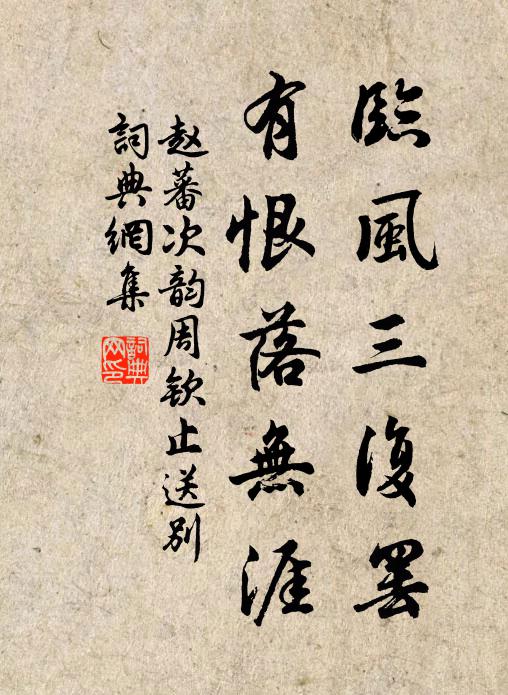 臨風三復罢
有恨落無涯
赵蕃次韵周钦止送别
詞典網集
詞典網印